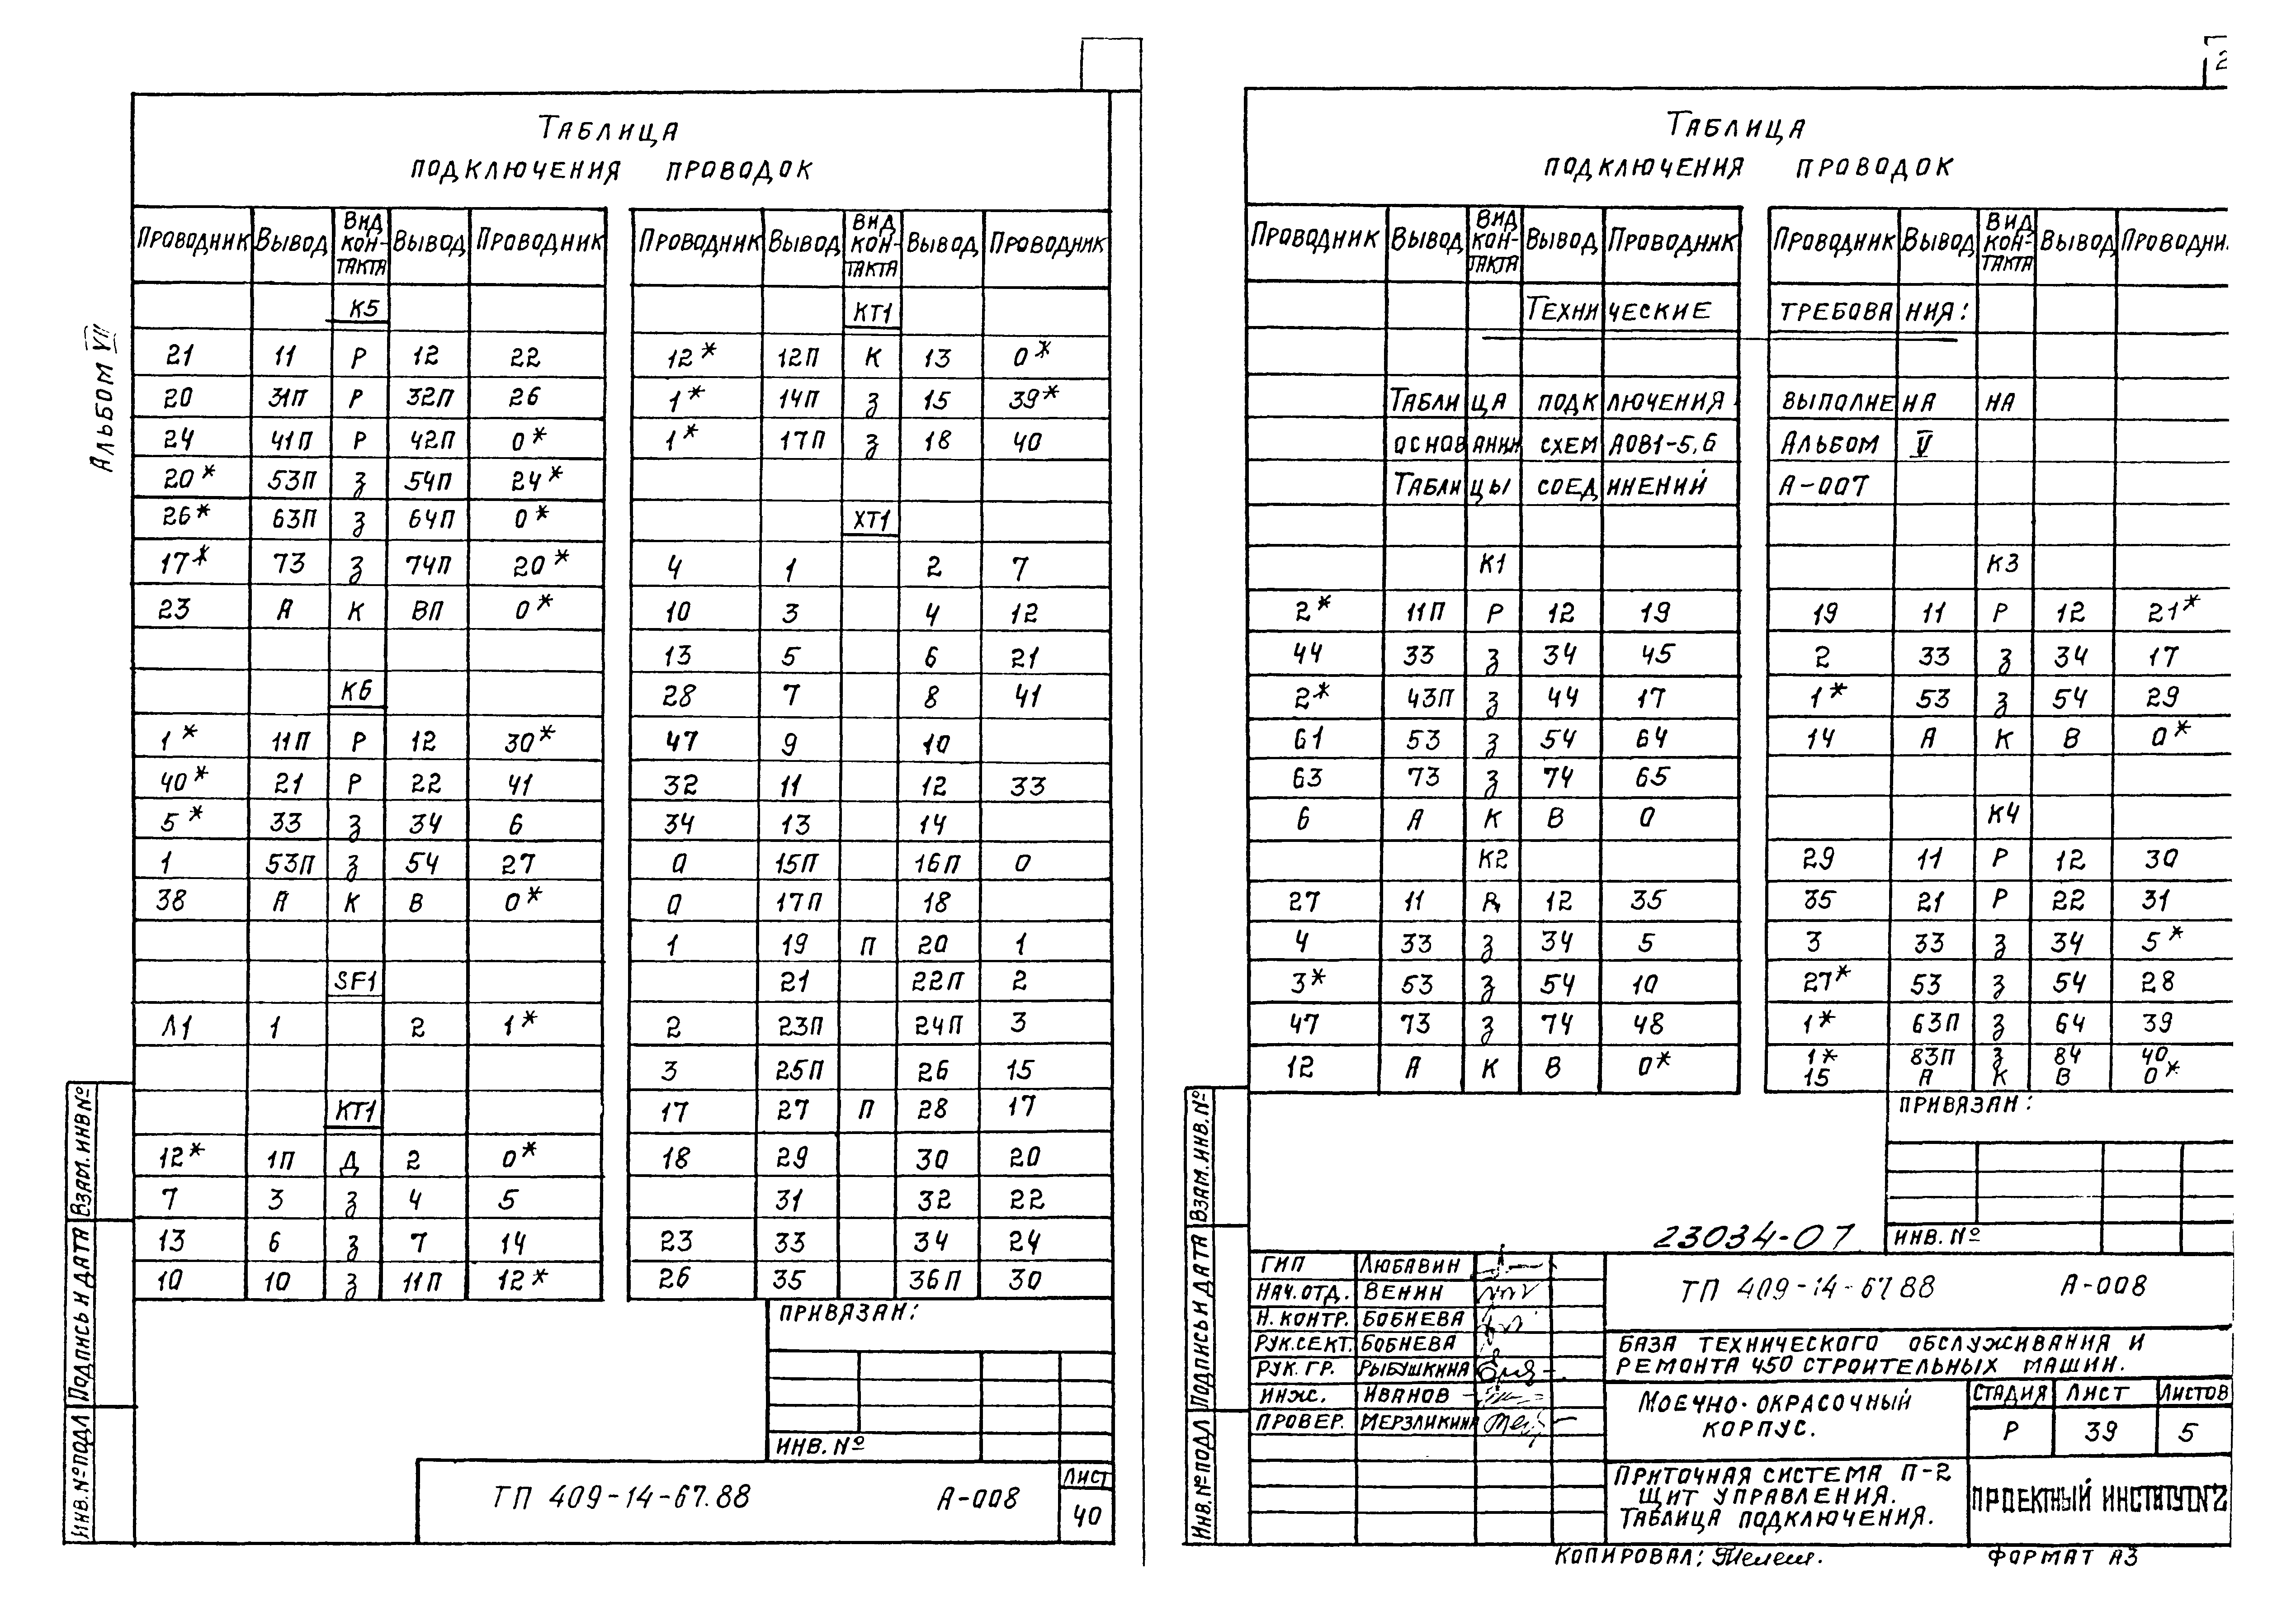 Альбом VII
Таблица
подключения проводок
Проводник Вывод Вид кон-такта Вывод Проводник
К5
21 11 Р 12 22
20 31П Р 32П 26
24 41П Р 42П 0*
20* 53П З 54П 24*
26* 63П З 64П 0*
17* 73 З 74П 20*
23 А К ВП 0*
К6
1* 11П Р 12 30*
40* 21 Р 22 41
5* 33 З 34 6
1 53П З 54 27
38 А К В 0*
SF1
Л1 1 2 1*
КТ1
12* 1П Д 2 0*
7 3 З 4 5
13 6 З 7 14
10 10 З 11П 12*
Проводник Вывод Вид кон-такта Вывод Проводник
КТ1
12* 12П К 13 0*
1* 14П З 15 39*
1* 17П З 18 40
ХТ1
4 1 2 7
10 3 4 12
13 5 6 21
28 7 8 41
47 9 10
32 11 12 33
34 13 14
0 15П 16П 0
0 17П 18
1 19 П 20 1
21 22П 2
2 23П 24П 3
3 25П 26 15
17 27 П 28 17
18 29 30 20
31 32 22
23 33 34 24
26 35 36П 30
Привязан:
Инв. №
ТП 409-14-67.88 А-008
Лист
40
Взам. инв №
Подпись и дата
Инв. № подл
2
Таблица
подключения проводок
Проводник Вывод Вид кон-такта Вывод Проводник
Проводник Вывод Вид кон-такта Вывод Проводни
Технические требования:
Таблица подключения выполнена на
основании схем АОВ1-5,6 Альбом V
Таблицы соединений А-007
К1
2* 11П Р 12 19
44 33 З 34 45
2* 43П З 44 17
61 53 З 54 64
63 73 З 74 65
6 А К В 0
К2
27 11 Р 12 35
4 33 З 34 5
3* 53 З 54 10
47 73 З 74 48
12 А К В 0*
К3
19 11 Р 12 21*
2 33 З 34 17
1* 53 З 54 29
14 А К В 0*
К4
29 11 Р 12 30
35 21 Р 22 31
3 33 З 34 5*
27* 53 З 54 28
1* 63П З 64 39
1* 83П З 84 40
15 А К В 0*
Привязан:
Инв. №
23034-07
ГИП Любавин
Нач. отд. Венин
Н. контр. Бобнева
Рук. сект. Бобнева
Рук. гр. Рыбушкина
Инж. Иванов
Провер. Мерзликина
ТП 409-14-67.88 А-008
База технического обслуживания и
ремонта 450 строительных машин.
Моечно-окрасочный
корпус.
Стадия Лист Листов
Р 39 5
Приточная система П-2
Щит управления.
Таблица подключения.
Проектный институт №2
Взам. инв. №
Подпись и дата
Инв. № подл
Копировал: Телеш.
Формат А3